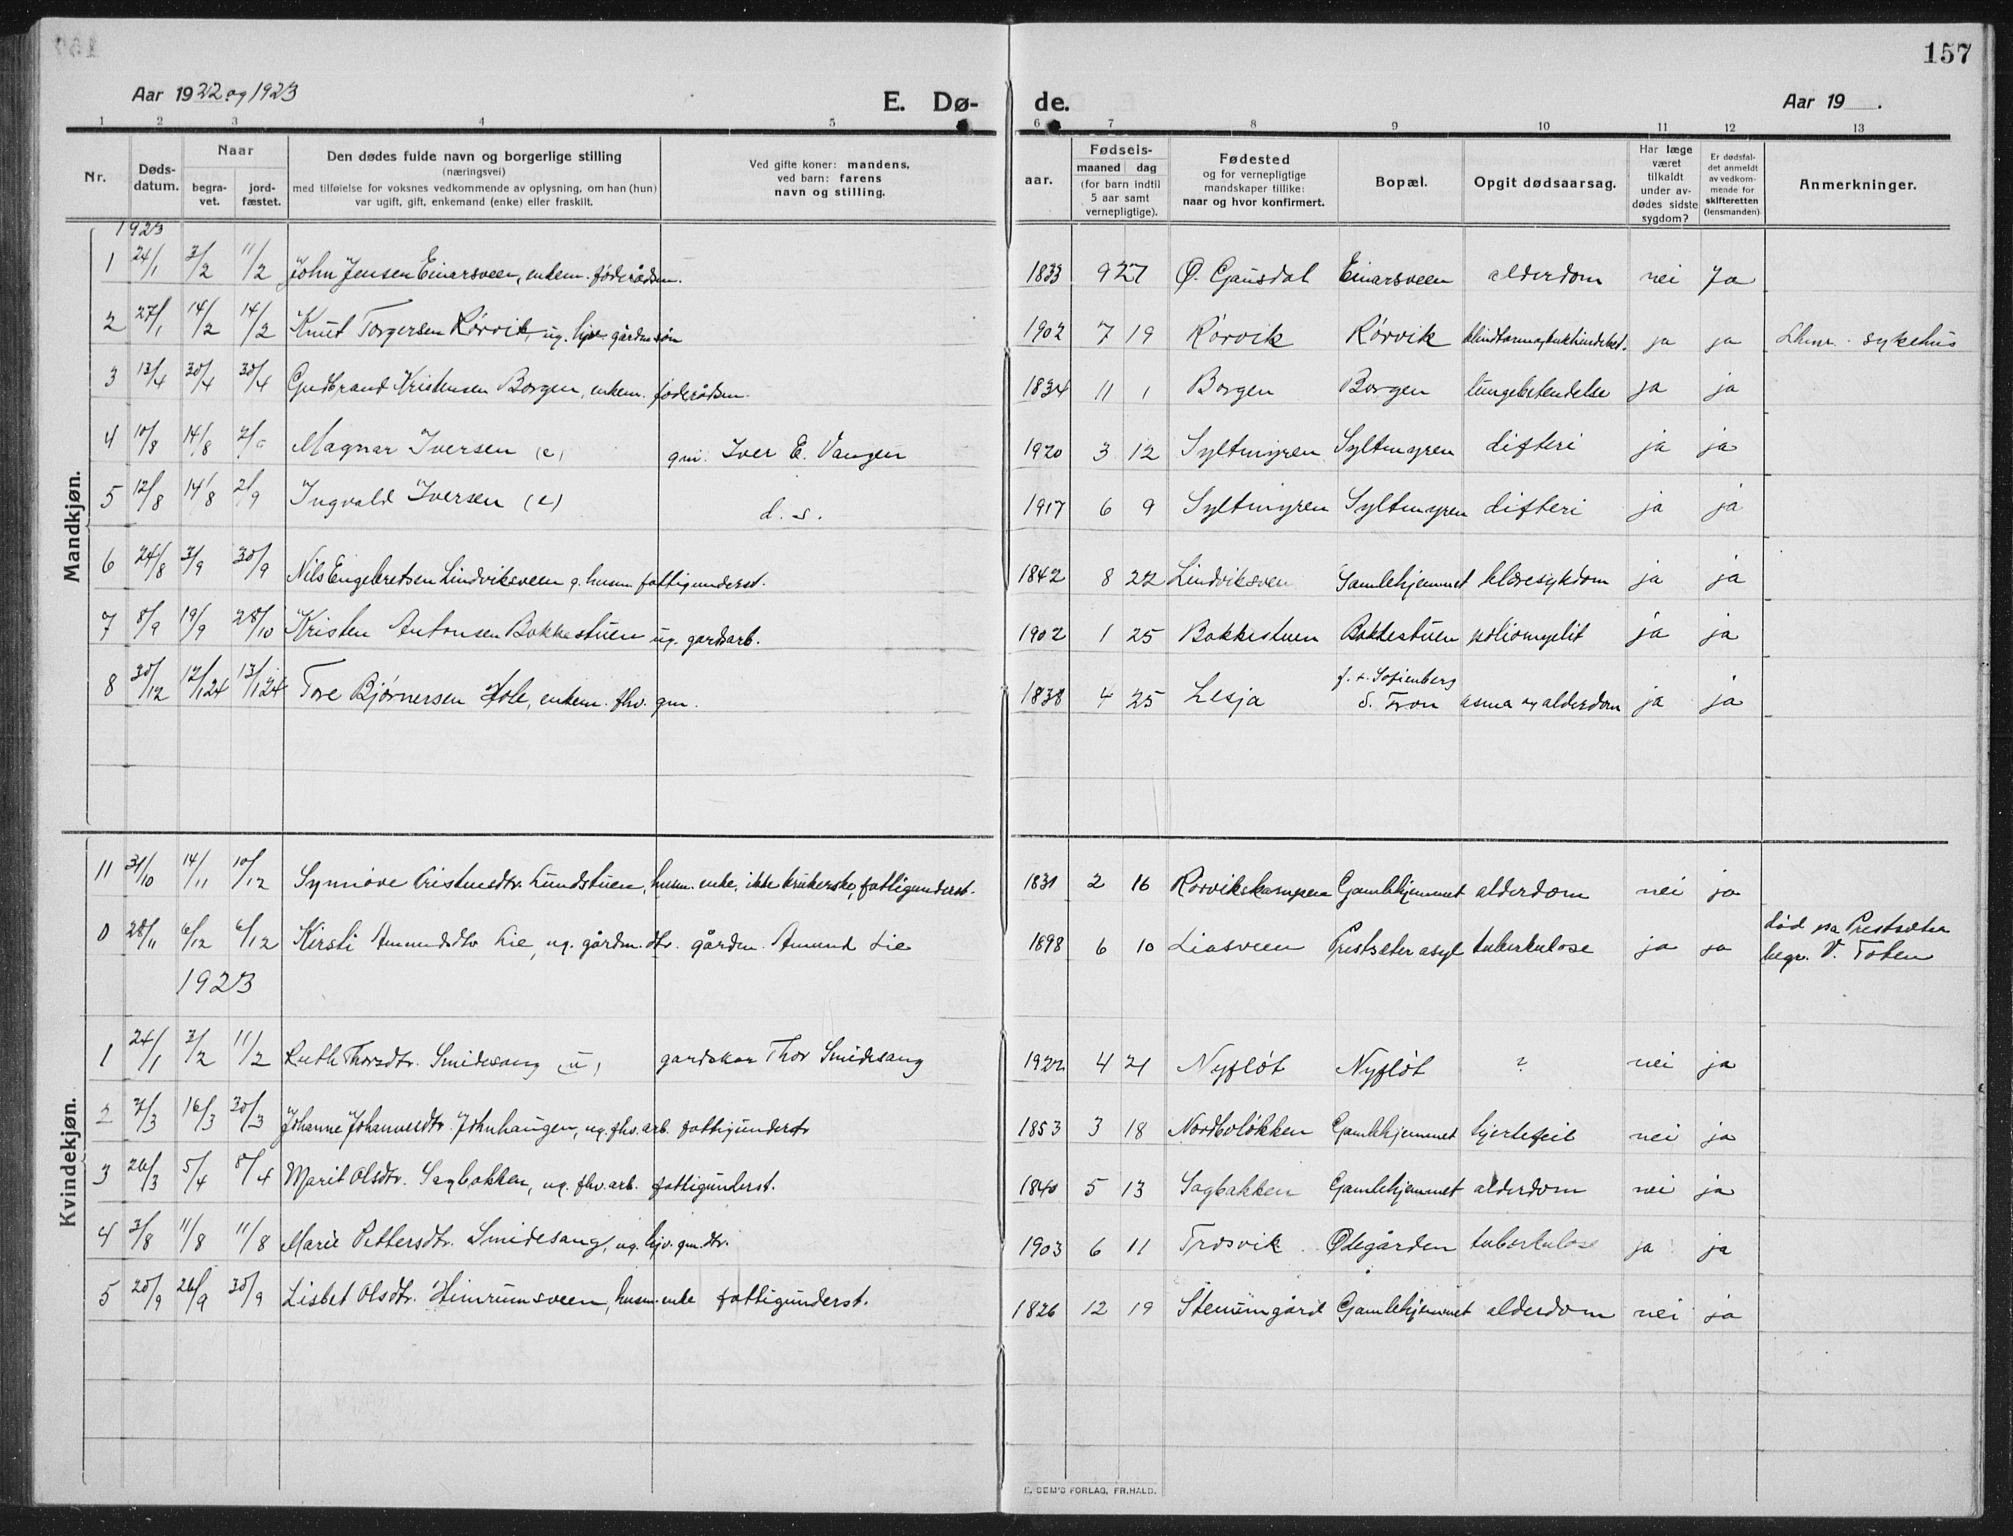 157
Aar 1922 og 1923 E. Dø- de. Aar 19 .
1 2 3 4 5 6 7 8 9 10 11 12 13
Nr. Døds-datum. Naar begra-vet. jord-fæstet. Den dødes fulde navn og borgerlige stilling (næringsvei) med tilføielse for voksnes vedkommende av oplysning, om han (hun) var ugift, gift, enkemand (enke) eller fraskilt. Ved gifte koner: mandens, ved barn: farens navn og stilling. Fødsels- aar. maaned dag (for barn indtil 5 aar samt vernepligtige). Fødested og for vernepligtige mandskaper tillike: naar og hvor konfirmert. Bopæl. Opgit dødsaarsag. Har læge været tilkaldt under av-dødes sidste sygdom? Er dødsfal-det anmeldt av vedkom-mende for skifteretten (lensmanden) Anmerkninger.
Mandkjøn.
1923
1 24/1 3/2 11/2 John Jensen Einarsveen, enkem. føderådsm. 1833 9 27 Ø. Gausdal Einarsveen alderdom nei Ja
2 27/1 14/2 14/2 Knut Torgersen Rørvik, ug. hjv. gårdm.søn 1902 7 19 Rørvik Rørvik ja ja Lhmr. sykehus
3 13/4 30/4 30/4 Gudbrand Kristensen Borgen, enkem. føderådsm. 1834 11 1 Borgen Borgen lungebetendelse ja ja
4 10/8 14/8 Magnar Iversen (e) gm. Iver E. Vangen 1920 3 12 Syltmyren Syltmyren difteri ja ja
5 12/8 14/8 2/9 Ingvald Iversen (e) d. s. 1917 6 9 Syltmyren Syltmyren difteri ja ja
6 24/8 3/9 30/9 Nils Engebretsen Lindviksveen g. husm fattigunderst. 1842 8 22 Lindviksveen Gamlehjemmet blæresykdom ja ja
7 8/9 19/9 28/10 Kristen Antonsen Bakkestuen ug. gardsarb. 1902 1 25 Bakkestuen Bakkestuen poliomyelit ja ja
8 30/12 12/1 24 13/1 24 Tore Bjørnersen Hole, enkem. fhv. gm. 1838 4 25 Lesja f. t. Sofienberg S. Fron asma og alderdom ja ja
Kvindekjøn.
11 31/10 14/11 10/12 Synnøve Cristensdtr. Lundstuen, husm. enke, ikke brukerske, fattigunderst. 1831 2 16 Rørvikskampen Gamlehjemmet alderdom nei ja
0 28/11 6/12 6/12 Kirsti Amundsdtr Lie, ug. gårdm. dtr. gårdm. Amund Lie 1898 6 10 Liasveen Prestsæter asyl tuberkulose ja ja død pa Prestsæter begr. V. Toten
1923
1 24/1 3/2 11/2 Ruth Thorsdtr. Smidesang (u) gardskar Thor Smidesang 1922 4 21 Nyfløt Nyfløt ? nei ja
2 7/3 16/3 30/3 Johanne Johannesdtr. Johnhaugen, ug. fhv. arb. fattigunderst 1853 3 18 Nordboløkken Gamlehjemmet hjertefeil nei ja
3 26/3 5/4 8/4 Marit Olsdtr. Sagbakken, ug. fhv. arb. fattigunderst. 1840 5 13 Sagbakken Gamlehjemmet alderdom nei ja
4 3/8 11/8 11/8 Marie Pettersdtr. Smidesang, ug. hjv. gm. dtr. 1903 6 11 Trosvik Ødegården tuberkulose ja ja
5 20/9 26/9 30/9 Lisbet Olsdtr. Heimrumsveen, husm. enke fattigunderst. 1826 12 19 Stenumgård Gamlehjemmet alderdom nei ja
E. SEM'S FORLAG, FR.HALD.